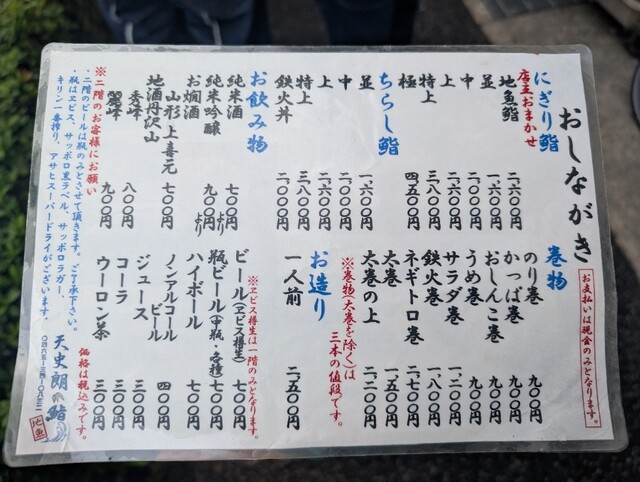 おしながき
お支払いは現金のみとなります。
にぎり鮨
店主おまかせ
地魚鮨 二六〇〇円
並 一六〇〇円
中 二〇〇〇円
上 二六〇〇円
特上 三八〇〇円
極 四五〇〇円
ちらし鮨
並 一六〇〇円
中 二〇〇〇円
上 二六〇〇円
特上 三八〇〇円
鉄火丼 二〇〇〇円
お飲み物
純米酒 七〇〇円より
純米吟醸 九〇〇円より
お燗酒
山形 上喜元 七〇〇円
地酒丹沢山
秀峰 八〇〇円
麗峰 九〇〇円
※二階のお客様にお願い
・二階のビールは瓶のみとさせて頂きます。ご了承下さい。
・瓶はヱビス、サッポロ黒ラベル、サッポロラガー、
キリン一番搾り、アサヒスーパードライがございます。
巻物
のり巻 九〇〇円
かっぱ巻 九〇〇円
おしんこ巻 九〇〇円
うめ巻 九〇〇円
サラダ巻 一二〇〇円
鉄火巻 一八〇〇円
ネギトロ巻 二七〇〇円
太巻 一五〇〇円
太巻の上 二二〇〇円
※巻物(太巻を除く)は
三本の値段です。
お造り
一人前 二五〇〇円
※ヱビス樽生は一階のみとなります。
ビール(ヱビス樽生) 七〇〇円
瓶ビール(中瓶・各種) 七〇〇円
ハイボール 七〇〇円
ノンアルコール
ビール 四〇〇円
ジュース 三〇〇円
コーラ 三〇〇円
ウーロン茶 三〇〇円
価格は税込みです。
天史朗の鮨
地魚
〇四六五―三四―〇八三二